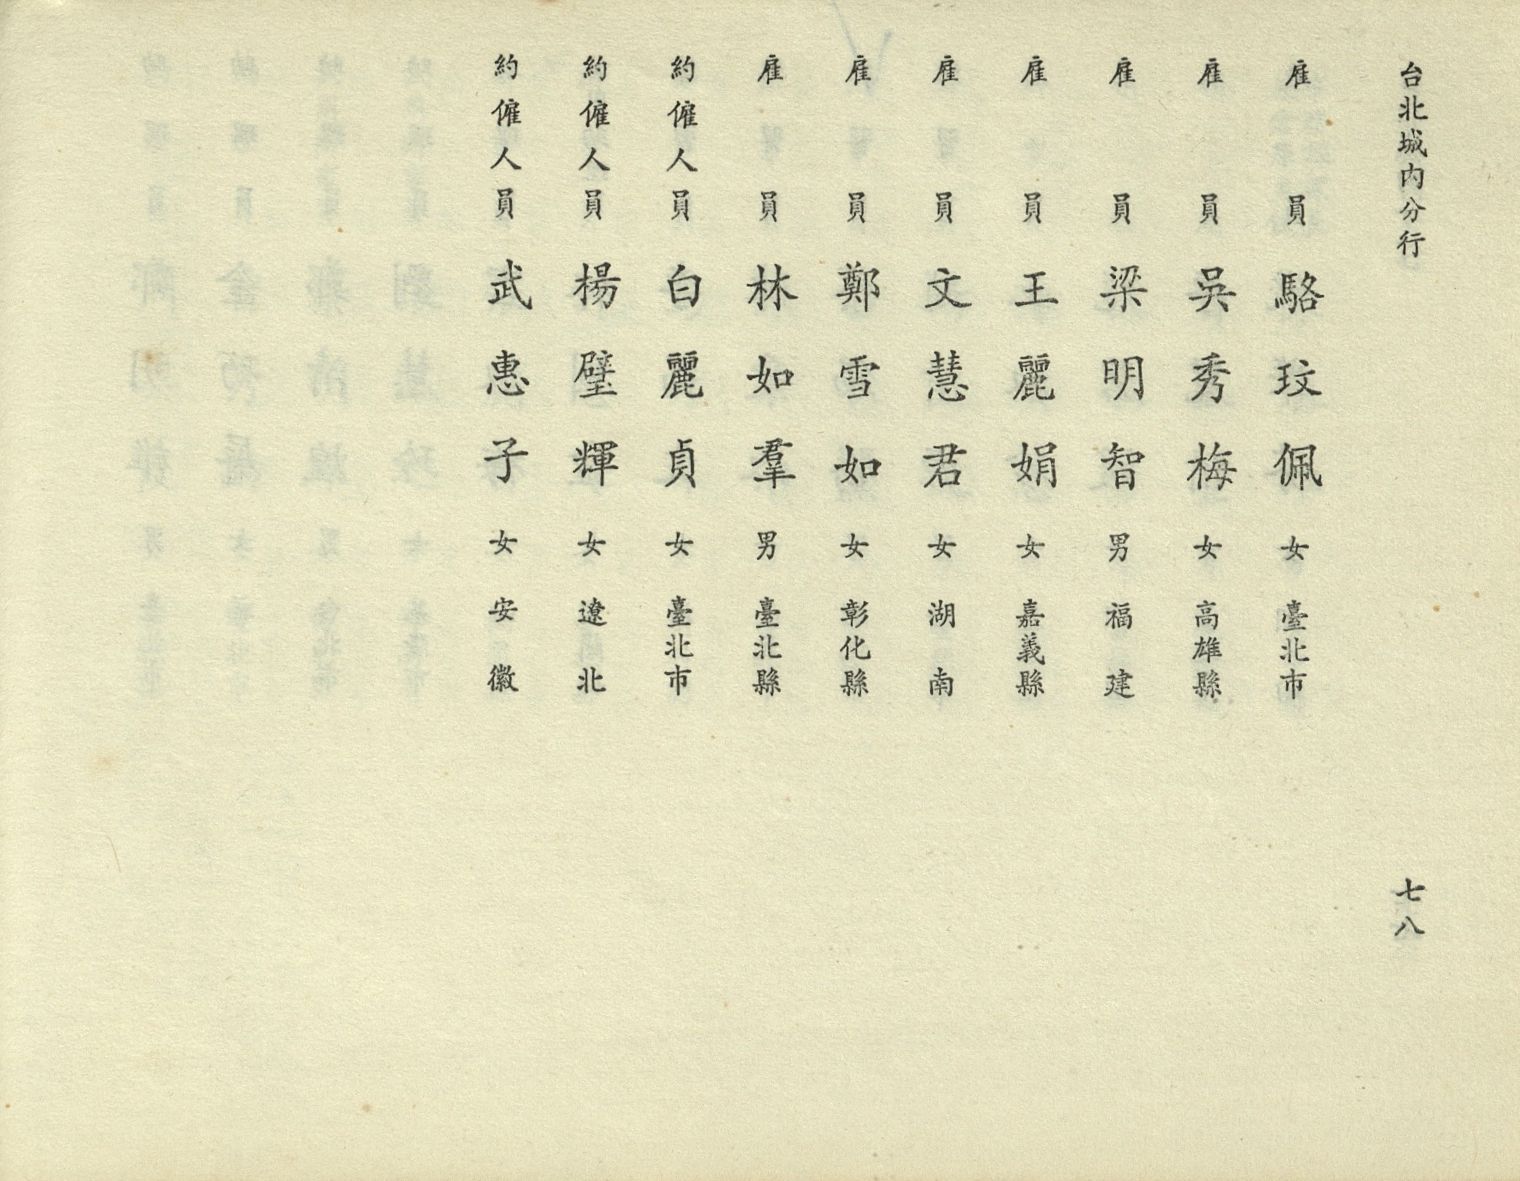 台北城內分行
雇員 駱玟佩 女 臺北市
雇員 吳秀梅 女 高雄縣
雇員 梁明智 男 福建
雇員 王麗娟 女 嘉義縣
雇員 文慧君 女 湖南
雇員 鄭雪如 女 彰化縣
雇員 林如羣 男 臺北縣
約僱人員 白麗貞 女 臺北市
約僱人員 楊璧輝 女 遼北
約僱人員 武惠子 女 安徽
七八